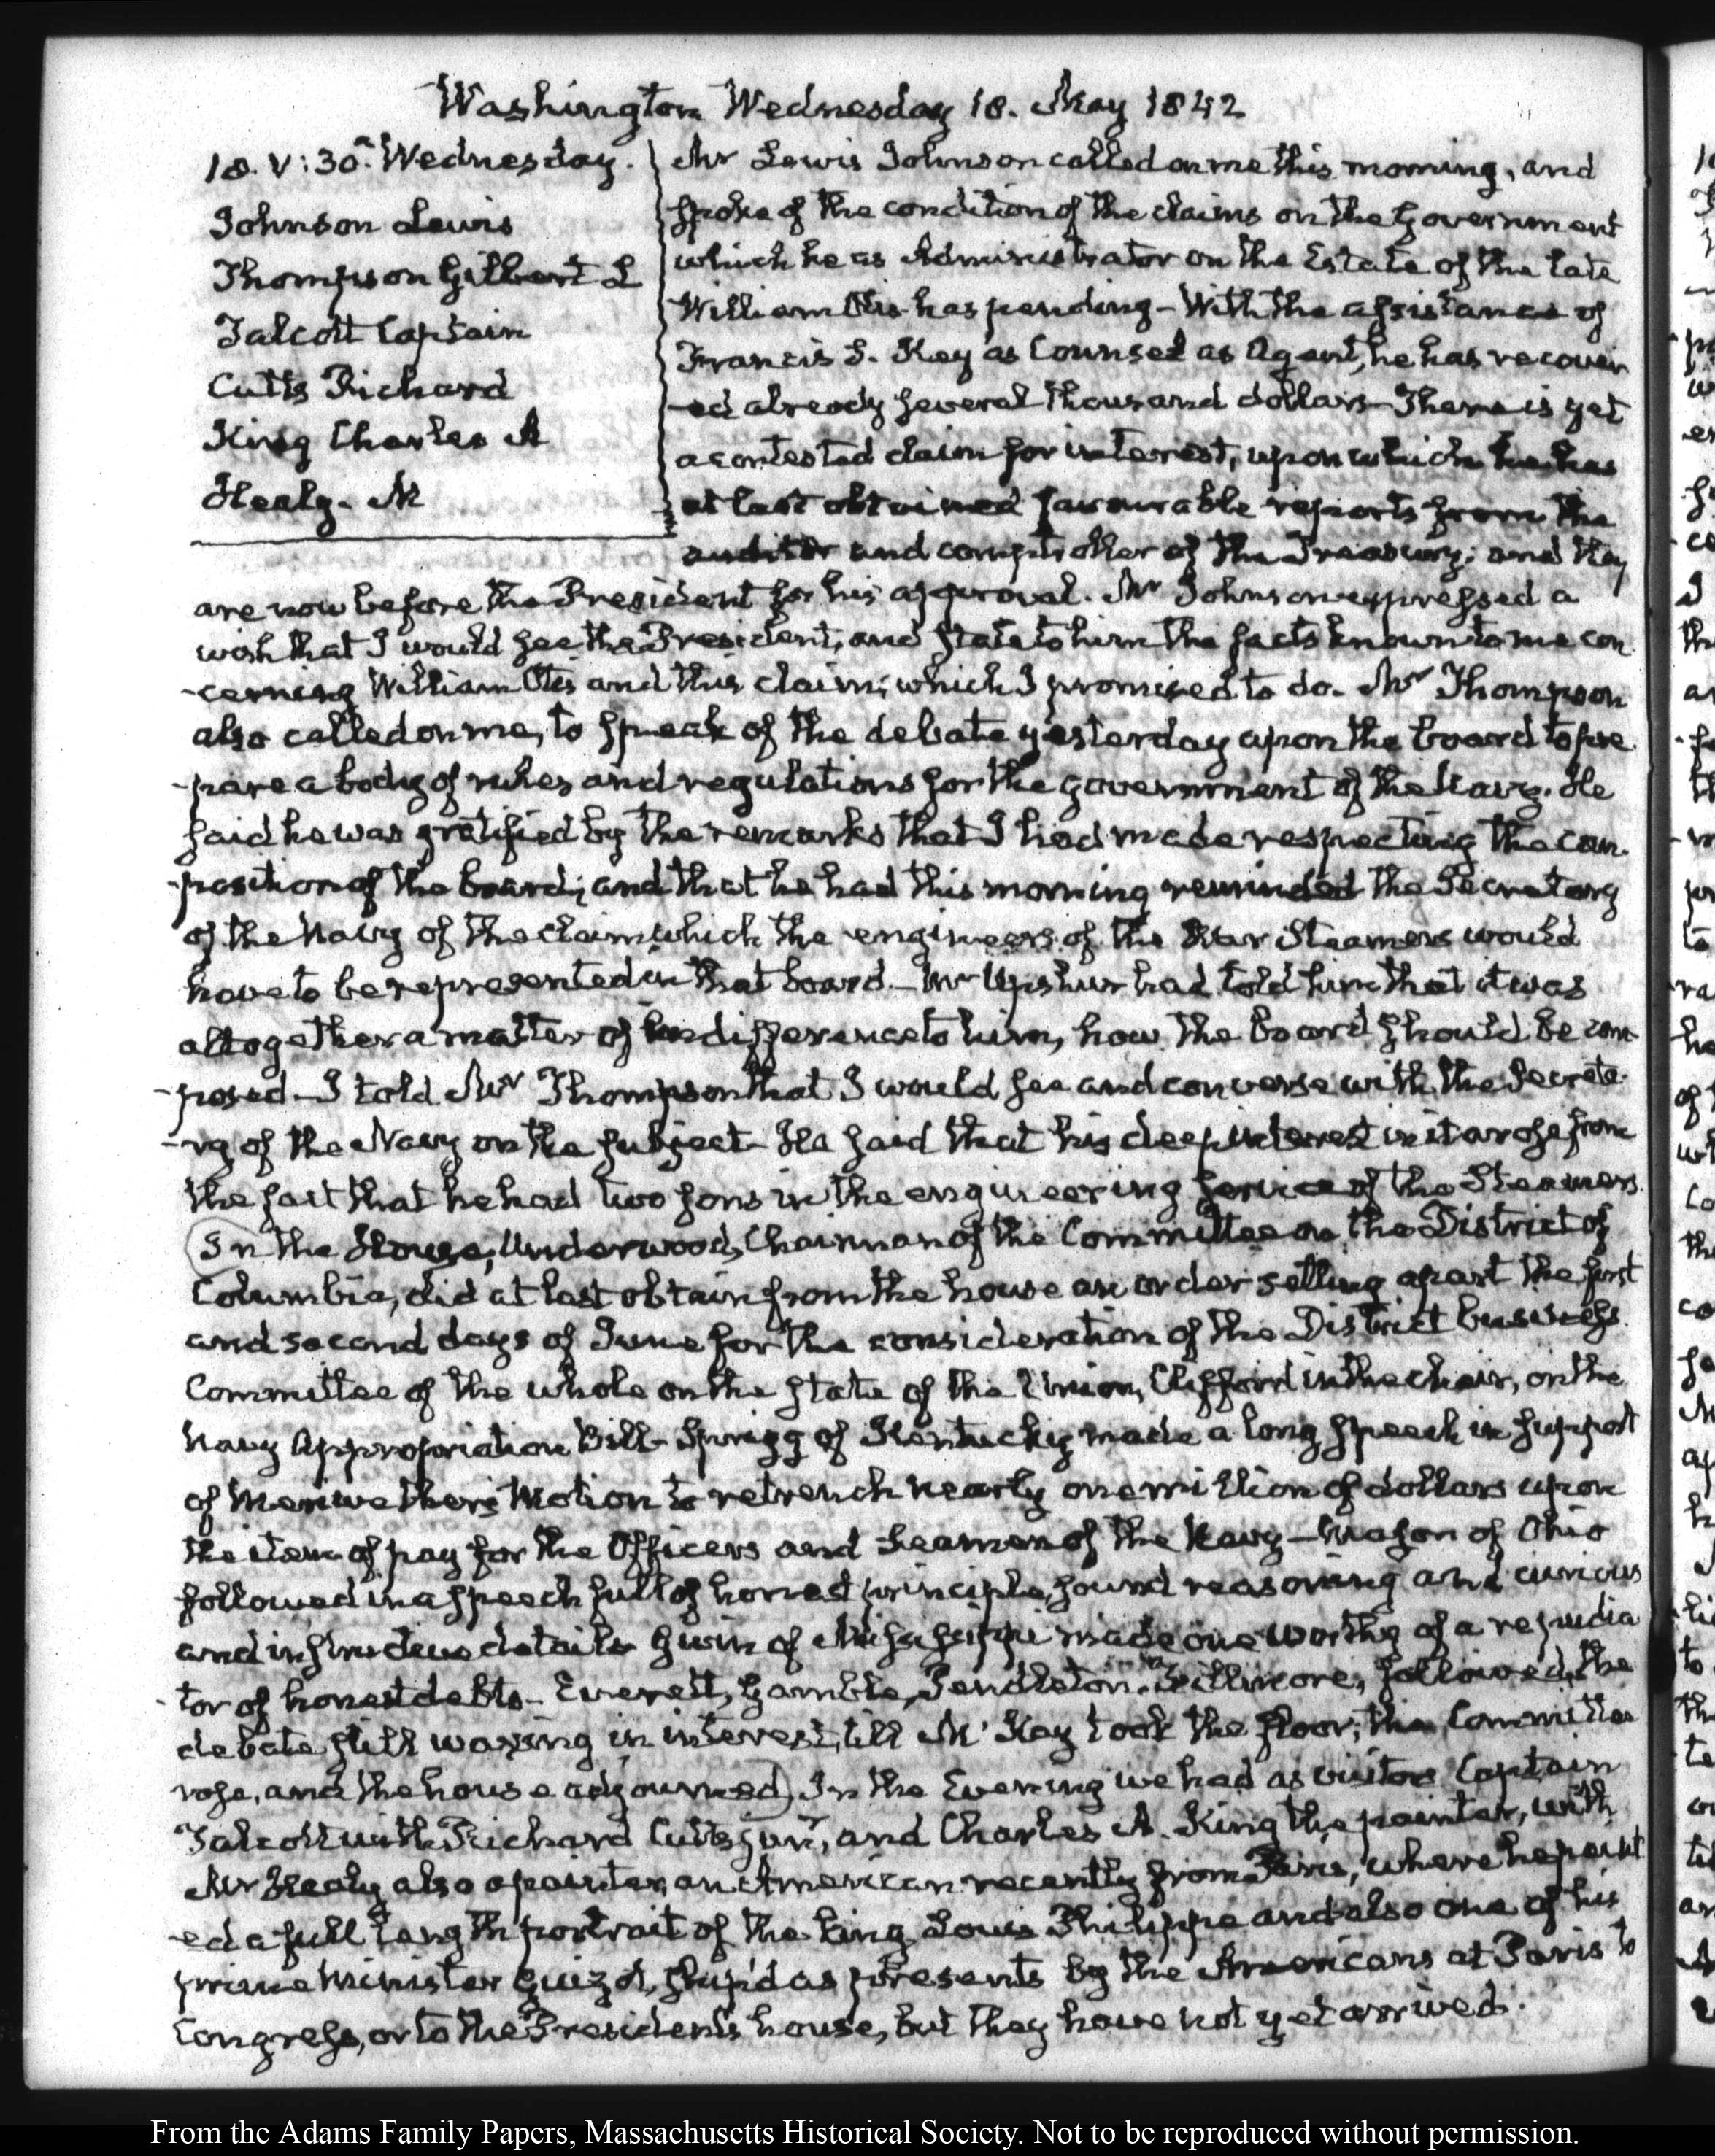 Washington Wednesday 18. May 1842
18. V:30. Wednesday.
Johnson Lewis
Thompson Gilbert L
Talcott Captain
Cutts Richard
King Charles A
Healy. M
Mr Lewis Johnson called on me this morning, and
spoke of the condition of the claims on the Government
which he as Administrator on the Estate of the late
William Otis has pending – With the assistance of
Francis S. Key as Counsel as Agent, he has recover
-ed already several thousand dollars – There is yet
a contested claim for interest, upon which he has
at last obtained favourable reports from the
auditor and comptroller of the Treasury; and they
are now before the President for his approval. Mr Johnson expressed a
wish that I would see the President, and state to him the facts known to me con
-cerning William Otis and this claim; which I promised to do. Mr Thompson
also called on me, to speak of the debate yesterday upon the board to pre
-pare a body of rules and regulations for the government of the Navy. He
said he was gratified by the remarks that I had made respecting the com
-position of the board; and that he had this morning reminded the Secretary
of the Navy of the claim which the engineers of the War Steamers would
have to be represented in that board – Mr Upshur had told him that it was
altogether a matter of indifference to him, how the board should be com
-posed – I told Mr Thompson that I would see and converse with the Secreta
-ry of the Navy on the subject – He said that his deep interest in it arose from
the fact that he had two sons in the engineering service of the Steamers.
In the House, Underwood, Chairman of the Committee on the District of
Columbia, did at last obtain from the house an order setting apart the first
and second days of June for the consideration of the District business.
Committee of the whole on the state of the Union, Clifford in the chair, on the
Navy Appropriation Bill – Sprigg of Kentucky made a long speech in support
of Meriwether's Motion to retrench nearly one million of dollars upon
the item of pay for the Officers and Seamen of the Navy – Mason of Ohio
followed in a speech full of honest principle, sound reasoning and curious
and instructive details – Gwin of Mississippi made one worthy of a repudia
-tor of honest debts – Everett, Gamble, Pendleton, Fillmore, followed, the
debate still waxing in interest, till McKay took the floor; the Committee
rose, and the house adjourned) In the Evening we had as visitors Captain
Talcott with Richard Cutts junr, and Charles A. King the painter, with
Mr Healy also a painter, an American recently from Paris, where he paint
-ed a full length portrait of the king Louis Philippe and also one of his
prime Minister Guizot, ship'd as presents by the Americans at Paris to
Congress, or to the President's house, but they have not yet arrived.
From the Adams Family Papers, Massachusetts Historical Society. Not to be reproduced without permission.